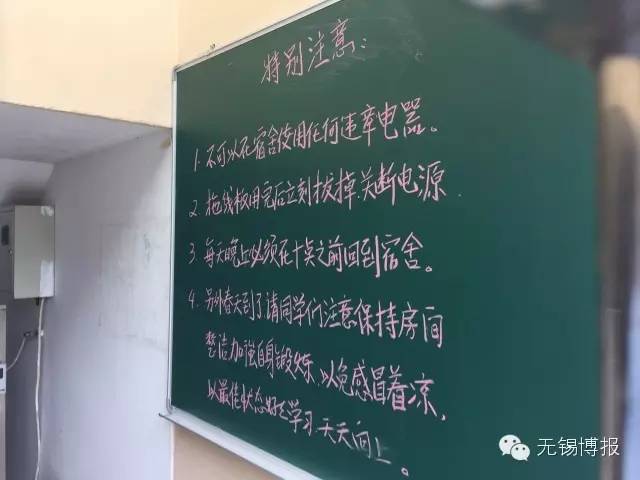 特别注意：
1. 不可以在宿舍使用任何违章电器。
2. 拖线板用完后立刻拔掉.关断电源
3. 每天晚上必须在十点之前回到宿舍。
4. 另外春天到了请同学们注意保持房间
整洁加强自身锻炼、以免感冒着凉,
以最佳状态好好学习 天天向上。
无锡博报